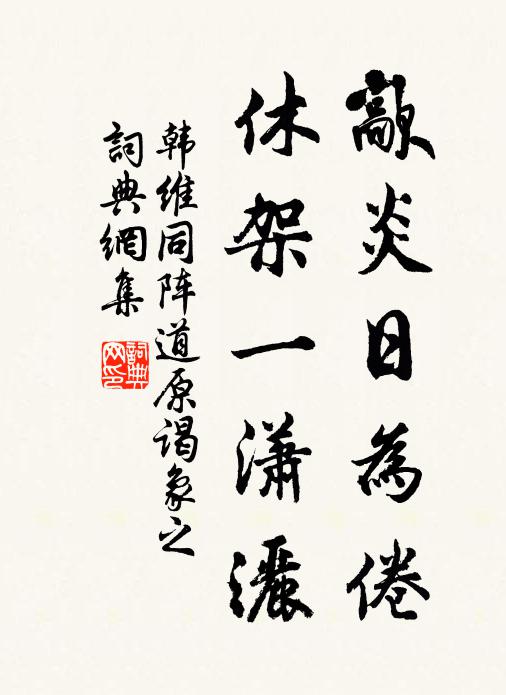 歊炎日為倦
休架一瀟灑
韩维同阵道原谒象之
詞典網集
詞典
网印